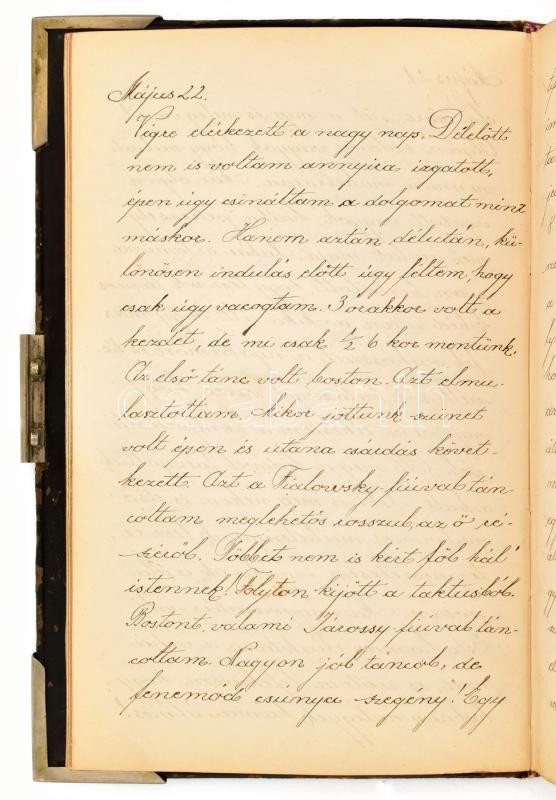 Május 22.
Végre elérkezett a nagy nap. Délelőtt
nem is voltam annyira izgatott,
épen úgy csináltam a dolgomat mint
máskor. Hanem aztán délután, kü-
lönösen indulás előtt úgy féltem, hogy
csak úgy vacogtam. 3 órakkor volt a
kezdet, de mi csak 1/2 6 kor mentünk.
Az első tánc volt boston. Azt elmu-
lasztottam. Mikor jöttünk szünet
volt épen és utána csárdás követ-
kezett. Azt a Fialowsky-fiúval tán-
coltam meglehetős rosszul, az ő ré-
széről. Többet nem is kért föl hál'
istennek! Folyton kijött a taktusból.
Bostont valami Járossy-fiúval tán-
coltam. Nagyon jól táncol, de
fenemód csúnya szegény! Egy
darabanth